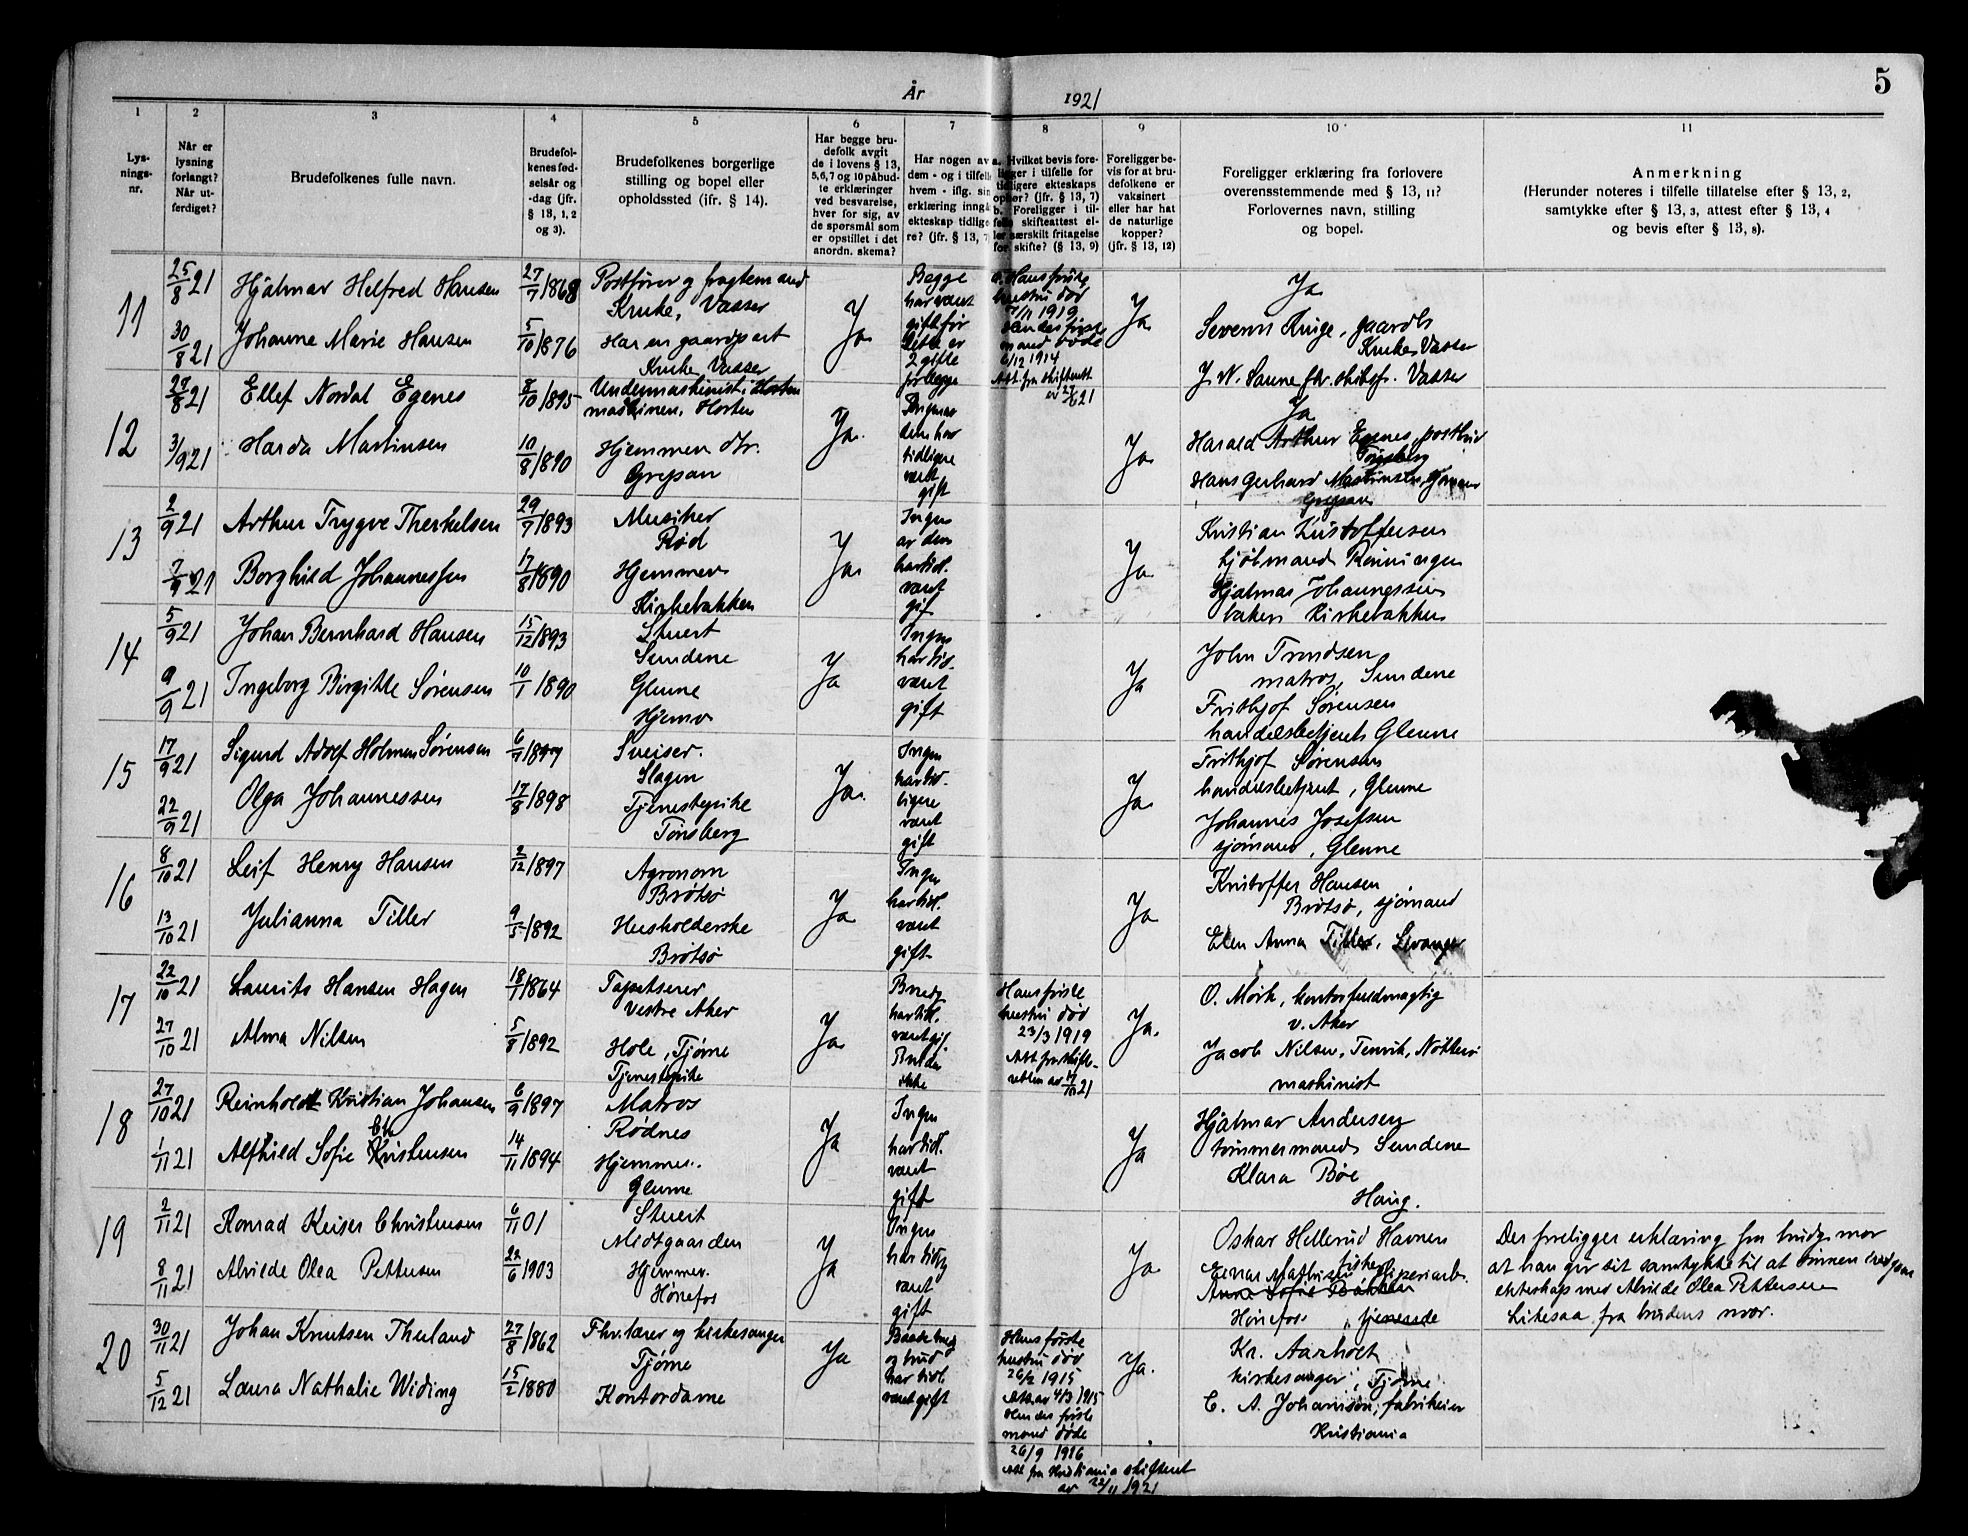 5
År 1921
1 2 3 4 5 6 7 8 9 10 11
Lysningsnr.
Når er lysning forlangt? Når utferdiget?
Brudefolkenes fulle navn.
Brudefolkenes fødselsår og -dag (jfr. § 13, 1, 2 og 3).
Brudefolkenes borgerlige stilling og bopel eller opholdssted (jfr. § 14).
Har begge brudefolk avgit de i lovens § 13, 5,6,7 og 10 påbudte erklæringer ved besvarelse, hver for sig, av de spørsmål som er opstillet i det anordn. skema?
Har nogen av dem - og i tilfelle hvem - iflg. sin erklæring inngå ekteskap tidligere? (jfr. § 13, 7
a. Hvilket bevis foreligger i tilfelle for tidligere ekteskaps ophør? (jfr. § 13, 7)
b. Foreligger i tilfelle skifteattest eller særskilt fritagelse for skifte? (§ 13, 9)
Foreligger bevis for at brudefolkene er vaksinert eller har hat de naturlige kopper? (jfr. § 13, 12)
Foreligger erklæring fra forlovere overensstemmende med § 13, 11? Forlovernes navn, stilling og bopel.
Anmerkning
(Herunder noteres i tilfelle tillatelse efter § 13, 2, samtykke efter § 13, 3, attest efter § 13, 4 og bevis efter § 13, 8).
11
25/8 21 Hjalmar Helfred Hansen 27/7 1868 Postfører og fragtemand
Kruke, Vasser
30/8 21 Johanne Marie Hansen 5/10 1876 Har en gaardpart
Kruke Vasser
Ja
Begge
har været
gift før
Dette er
2 gifte
for begge
a. Hans første
hustru død
1919
Hendes første
mand døde
6/12 1914
Att. fra skifterett
Ja
Ja
Severin Kruge, gaardb
Kruke, Vasser
Vasser
12
29/8 21 Ellef Nordal Egenes 8/10 1895 Undermaskinist i Horten
maskinen, Horten
3/9 21 Harda Martinsen 10/8 1890 Hjemmev. dtr.
Grepan
Ja.
Ingen av
dem har
tidligere
været
gift
Ja
Ja
Harald Arthur Egenes, postbud
Tønsberg
Hans Gerhard Martinsen,
Grepan
13
2/9 21 Arthur Trygve Therkelsen 29/7 1893 Musiker
Rød
7/9 21 Borghild Johannessen 17/8 1890 Hjemmev
Kirkebakken
Ja
Ingen
av dem
har tidl.
været
gift
Ja
Kristian Kristoffersen
sjømand Rønningen
Hjalmar Johannessen
baker Kirkebakken
14
5/9 21 Johan Bernhard Hansen 15/12 1893 Stuert
Sundene
9/9 21 Ingeborg Birgitte Sørensen 10/1 1890 Glenne
Hjemv
Ja
Ingen
har tid.
været
gift
Ja
John Trondsen
matros, Sundene
Frithjof Sørensen
handelsbetjent Glenne
15
17/9 21 Sigurd Adolf Holmen Sørensen Sveiser.
Slagen
22/9 21 Olga Johannessen 17/8 1898 Tjenestepike
Tønsberg
Ja.
Ingen
har tid-
ligere
været
gift
Ja
Frithjof Sørensen
handelsbetjent, Glenne
Johannes Josefsen
sjømand, Glenne
16
8/10 21 Leif Henry Hansen 2/12 1897 Agronom
Brøtsø
13/10 21 Julianna Tiller 9/5 1892 Husholderske
Brøtsø
Ja
Ingen
har tidl.
været
gift
Ja
Kristoffer Hansen
Brøtsø, sjømand
Elen Anna Tiller, Levanger
17
22/10 21 Laurits Hansen Hagen 18/1 1864 Tapetserer
Vestre Aker
27/10 21 Alma Nilsen 5/8 1892 Hole, Tjøme
Tjenestepike
Ja
Brudg
har tidl.
været gif
Bruden
ikke
Hans første
hustru død
23/3 1919
Att fra skifte-
retten av 17/10 21
Ja.
O. Mørk, kontorfuldmægtig
v. Aker
Jacob Nilsen, Tenvik, Nøtterø
maskinist
18
27/10 21 Reinholdt Kristian Johansen 6/9 1897 Matros
Rødnes
1/11 21 Alfhild Sofie Christensen 14/11 1894 Hjemmev.
Glenne
Ja
Ingen
har tidl.
været
gift
Ja
Hjalmar Andersen
tømmermand Sundene
Klara Bøe
Haug.
19
2/11 21 Konrad Keiser Christensen 6/11 01 Stuert
Midtgaarden
8/11 21 Alvilde Olea Pettersen 22/6 1903 Hjemmev.
Hønefos
Ja
Ingen
har tidlg
været
gift
Ja
Oskar Hellerud Havnen
fisker
Einar Mathisen sliperiarb.
Anna Sofie Bakken
Hønefos, tjenende
Der foreligger erklæring fra brudg. mor
at han gir sit samtykke til at sønnen indgaar
ekteskap med Alvilde Olea Pettersen
Likesaa fra brudens mor.
20
30/11 21 Johan Knutsen Thuland 27/8 1862 Fhv. lærer og kirkesanger
Tjøme
5/12 21 Laura Nathalie Widing 15/2 1880 Kontordame
Ja
Baade brudg
og brud
har tidl.
været gift
Hans første
hustru død
26/2 1915
Att av 4/3 1915
Hendes første
mand døde
26/9 1916
Att fra Kristiania skifteret
av 22/11 1921
Ja.
Kr. Aarholt
kirkesanger, Tjøme
C. A. Johannson, fabrikeier
Kristiania